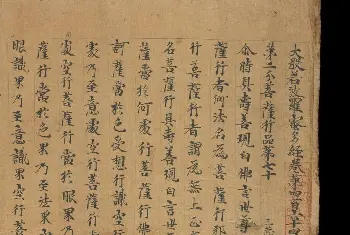 大般若波羅蜜多經卷第四百七十
第二分菩薩行品第七十 三
尒時具壽善現白佛言世尊
薩行者何法名為菩薩行佛
行菩薩行者謂為無上正
名菩薩行具壽善現白言世尊
薩當於何處行菩薩行佛
訶薩當於色受想行識空行
處乃至意處空行菩薩行
處空行菩薩行當於眼界乃
薩行當於色界乃至法界
眼識界乃至意識界空行菩